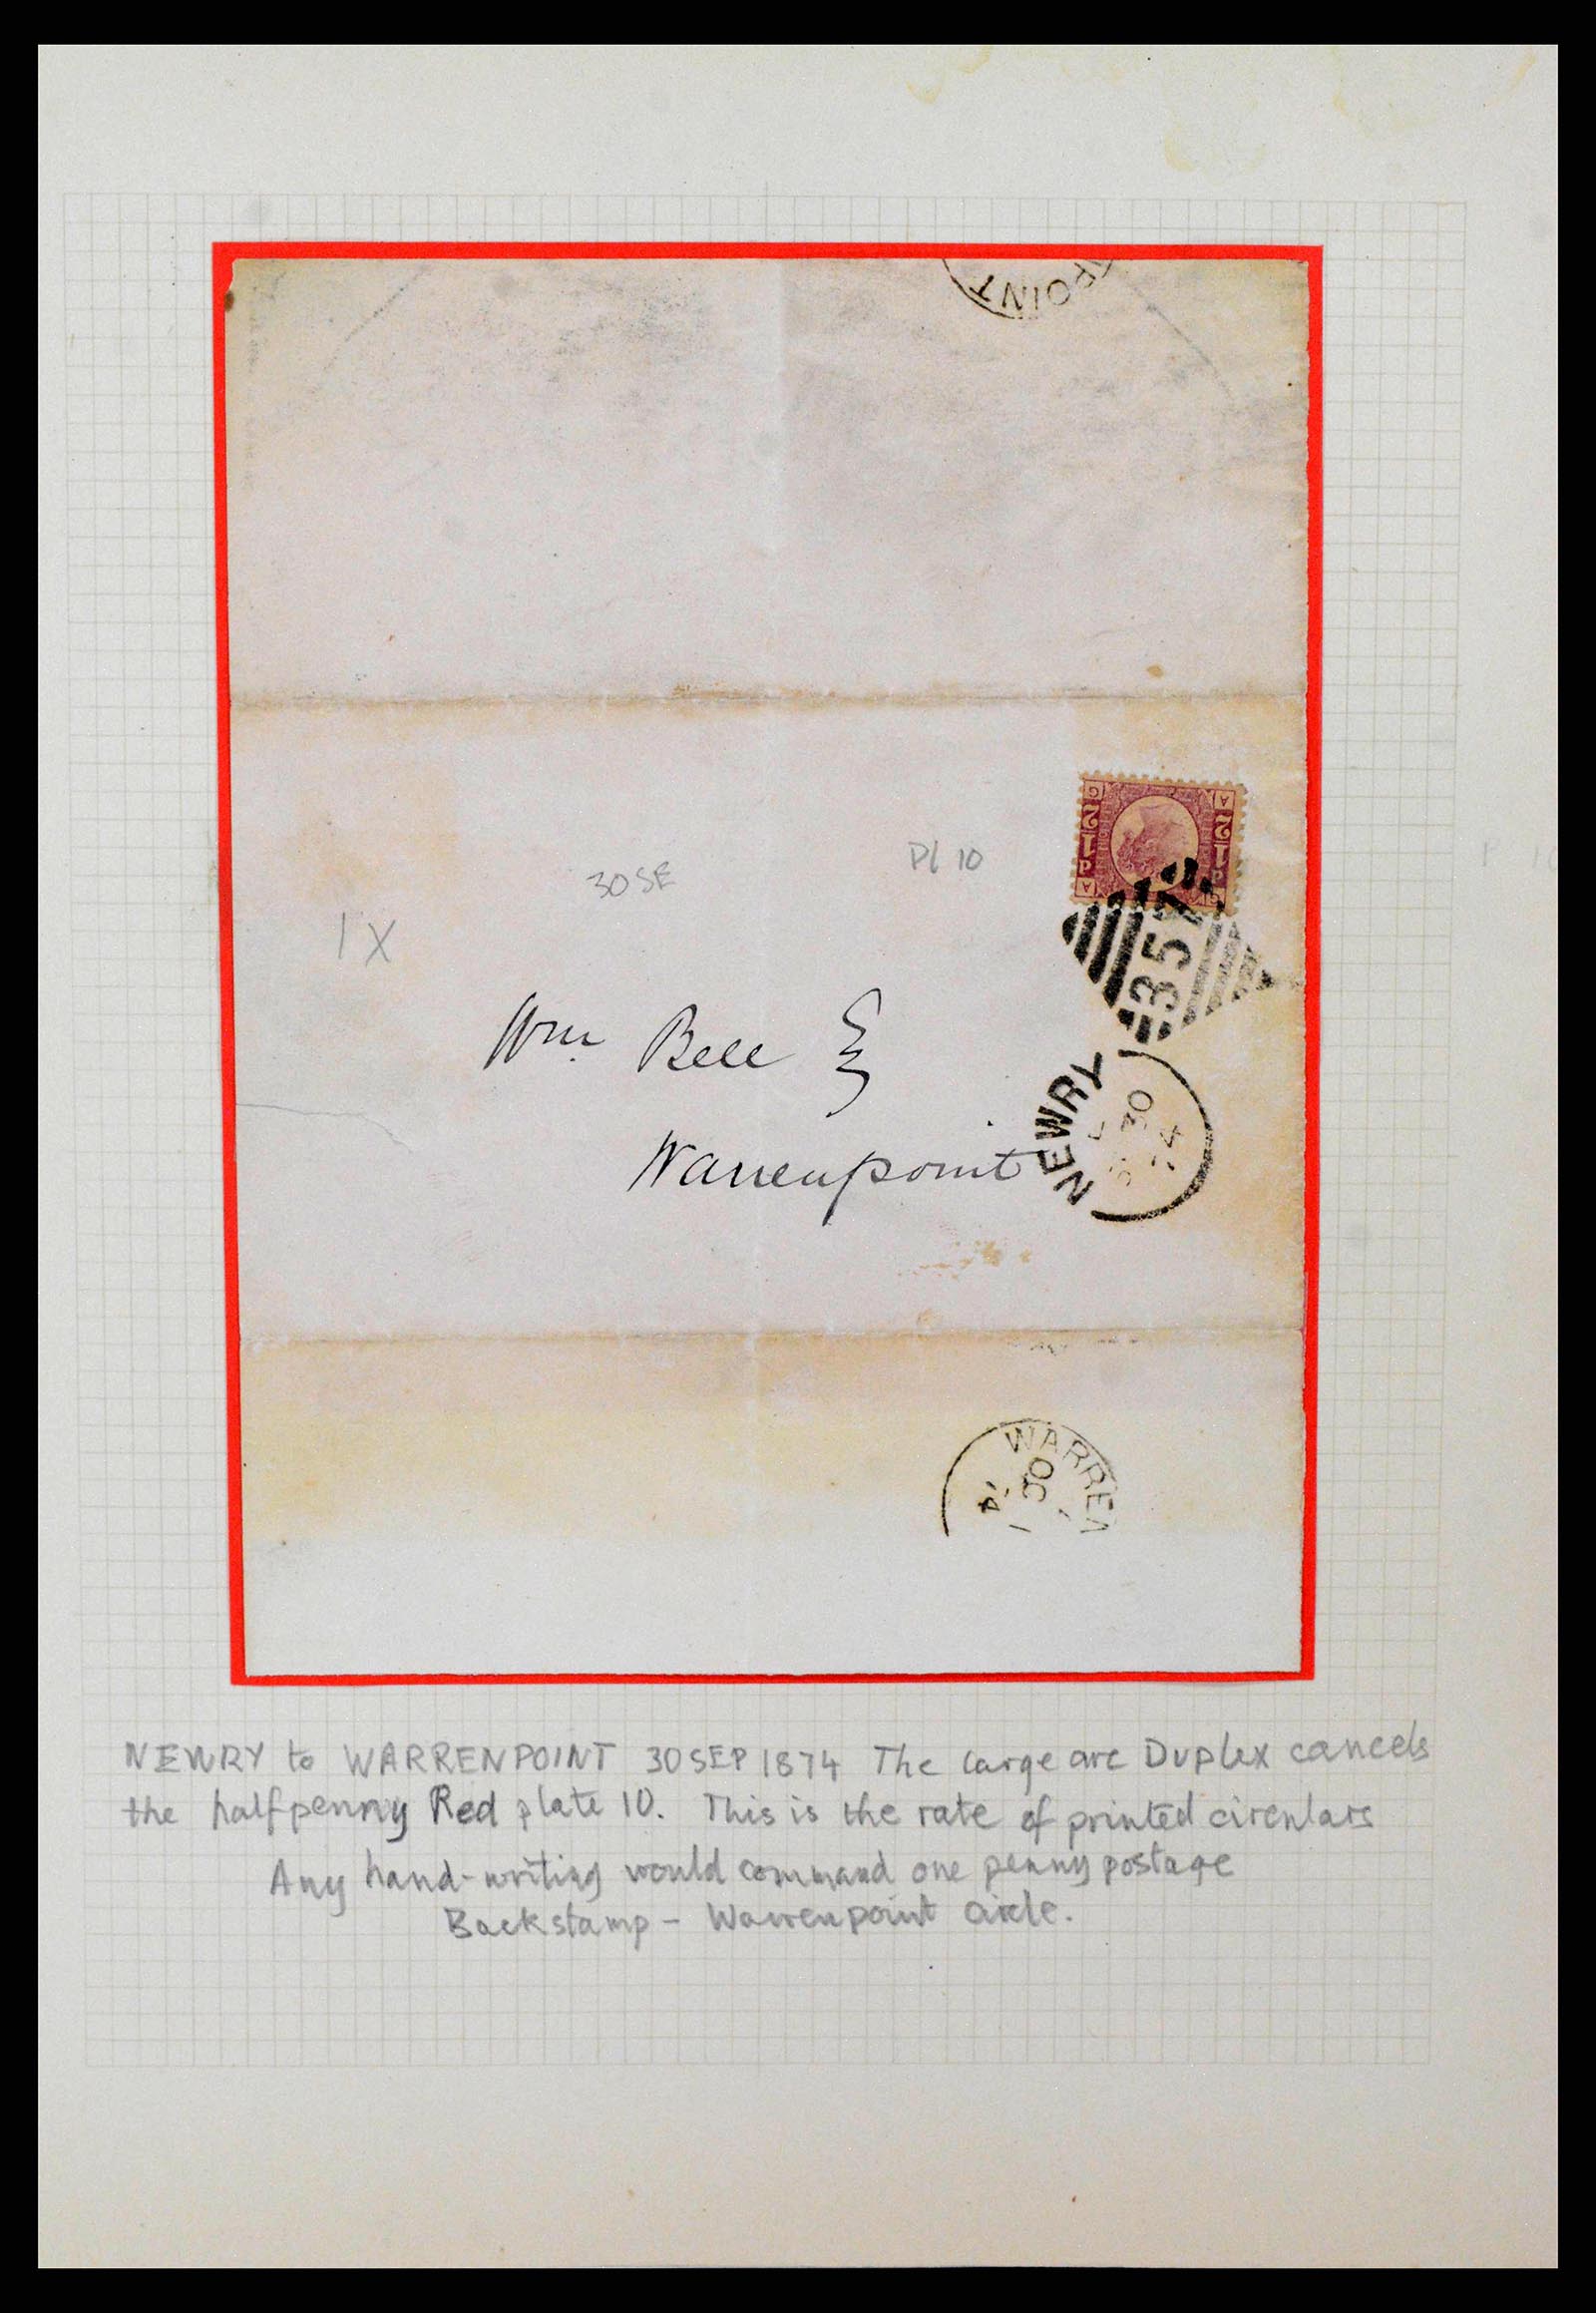 POINT
Pl 10
30 SE
1 X
357
Wm. Bell E
NEWRY
30
Warrenpoint
WARREN
30
NEWRY to WARRENPOINT 30 SEP 1874 The large arc Duplex cancels
the halfpenny Red plate 10. This is the rate of printed circulars
Any hand-writing would command one penny postage
Backstamp - Warrenpoint circle.